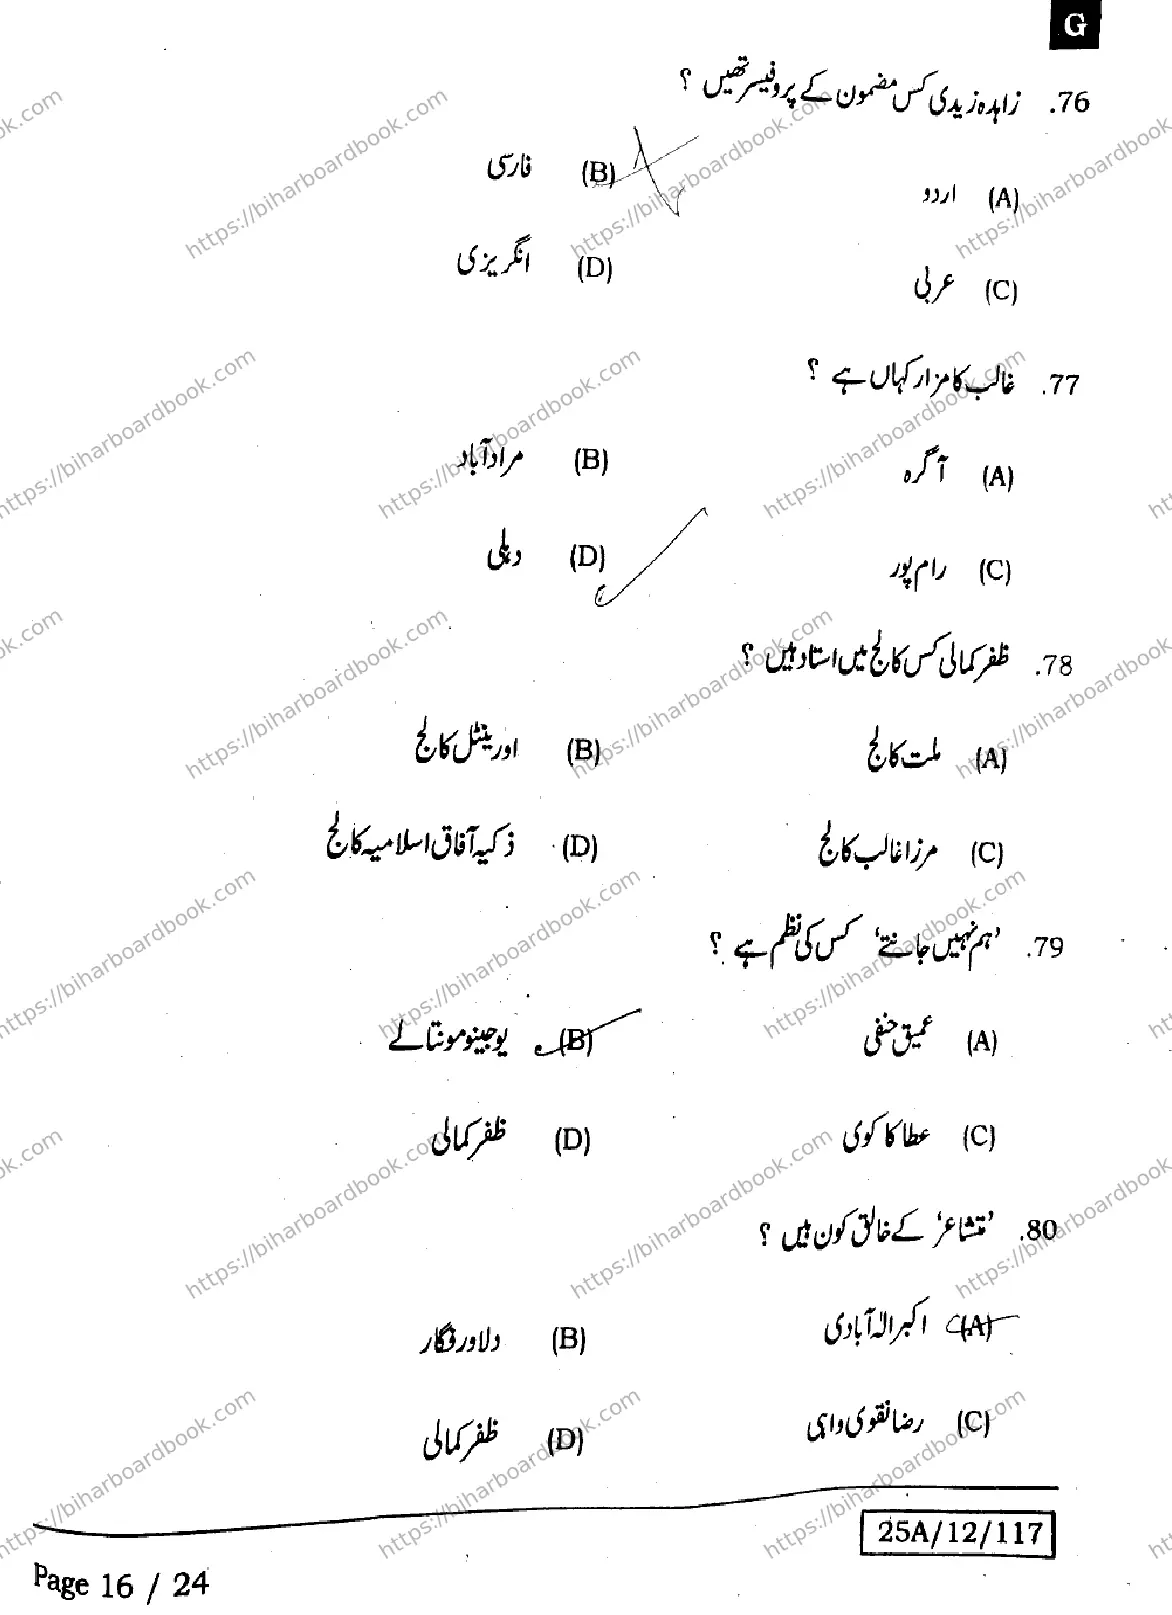 G
76. زاہدہ زیدی کس مضمون کے پروفیسر تھیں ؟
(A) اردو (B) فارسی
(C) عربی (D) انگریزی
77. غالب کا مزار کہاں ہے ؟
(A) آگرہ (B) مرادآباد
(C) رام پور (D) دہلی
78. ظفر کمالی کس کالج میں استاد ہیں ؟
(A) ملت کالج (B) اورینٹل کالج
(C) مرزا غالب کالج (D) ذکیہ آفاق اسلامیہ کالج
79. ’ہم نہیں جانتے‘ کس کی نظم ہے ؟
(A) عمیق حنفی (B) یوجینو مونتالے
(C) عطا کاکوی (D) ظفر کمالی
80. ’متشاعر‘ کے خالق کون ہیں ؟
(A) اکبر الہ آبادی (B) دلاور فگار
(C) رضا نقوی واہی (D) ظفر کمالی
25A/12/117
Page 16 / 24
https://biharboardbook.com